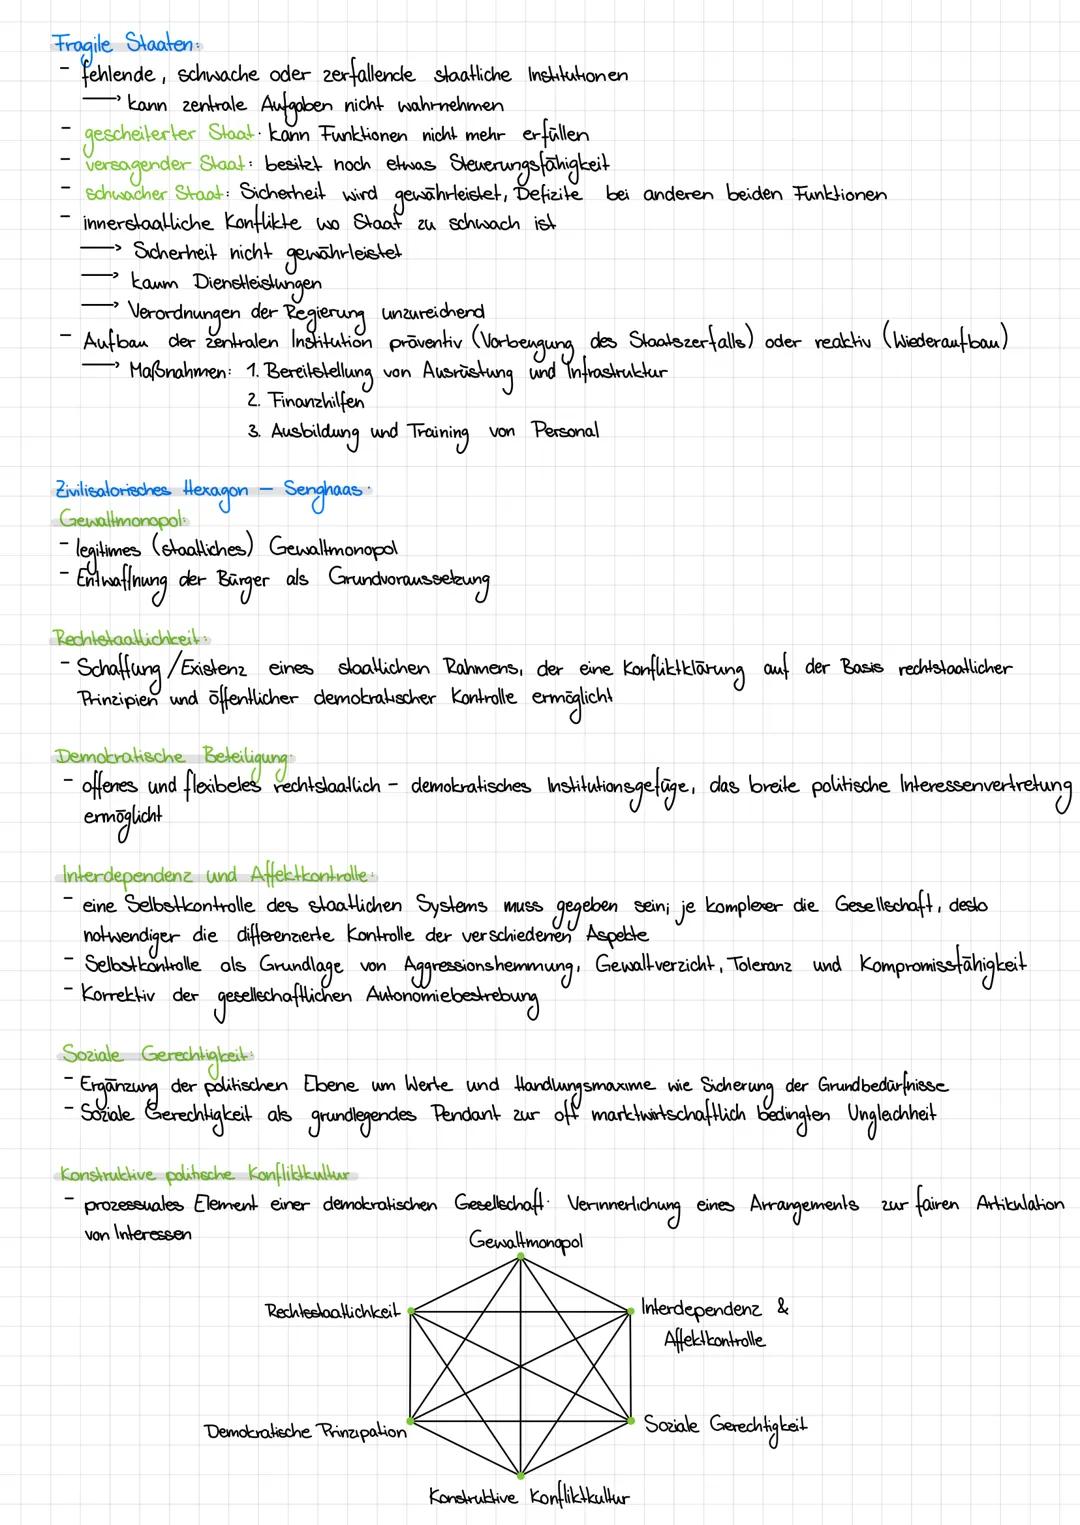 Fragile Staaten:
- fehlende, schwache oder zerfallende staatliche Institutionen
⟶ kann zentrale Aufgaben nicht wahrnehmen
- gescheiterter Staat: kann Funktionen nicht mehr erfüllen
- versagender Staat: besitzt noch etwas Steuerungsfähigkeit
- schwacher Staat: Sicherheit wird gewährleistet, Defizite bei anderen beiden Funktionen
- innerstaatliche Konflikte wo Staat zu schwach ist
⟶ Sicherheit nicht gewährleistet
⟶ kaum Dienstleistungen
⟶ Verordnungen der Regierung unzureichend
- Aufbau der zentralen Institution präventiv (Vorbeugung des Staatszerfalls) oder reaktiv (Wiederaufbau)
⟶ Maßnahmen: 1. Bereitstellung von Ausrüstung und Infrastruktur
2. Finanzhilfen
3. Ausbildung und Training von Personal
Zivilisatorisches Hexagon - Senghaas:
Gewaltmonopol:
- legitimes (staatliches) Gewaltmonopol
- Entwaffnung der Bürger als Grundvoraussetzung
Rechtstaatlichkeit:
- Schaffung/Existenz eines staatlichen Rahmens, der eine Konfliktklärung auf der Basis rechtstaatlicher
Prinzipien und öffentlicher demokratischer Kontrolle ermöglicht
Demokratische Beteiligung:
- offenes und flexibeles rechtstaatlich - demokratisches Institutionsgefüge, das breite politische Interessenvertretung
ermöglicht
Interdependenz und Affektkontrolle:
- eine Selbstkontrolle des staatlichen Systems muss gegeben sein; je komplexer die Gesellschaft, desto
notwendiger die differenzierte Kontrolle der verschiedenen Aspekte
- Selbstkontrolle als Grundlage von Aggressionshemmung, Gewaltverzicht, Toleranz und Kompromissfähigkeit
- Korrektiv der gesellschaftlichen Autonomiebestrebung
Soziale Gerechtigkeit:
- Ergänzung der politischen Ebene um Werte und Handlungsmaxime wie Sicherung der Grundbedürfnisse
- Soziale Gerechtigkeit als grundlegendes Pendant zur oft marktwirtschaftlich bedingten Ungleichheit
Konstruktive politische Konfliktkultur
- prozessuales Element einer demokratischen Gesellschaft: Verinnerlichung eines Arrangements zur fairen Artikulation
von Interessen
Gewaltmonopol
Rechtsstaatlichkeit
Interdependenz &
Affektkontrolle
Demokratische Prinzipation
Soziale Gerechtigkeit
Konstruktive Konfliktkultur